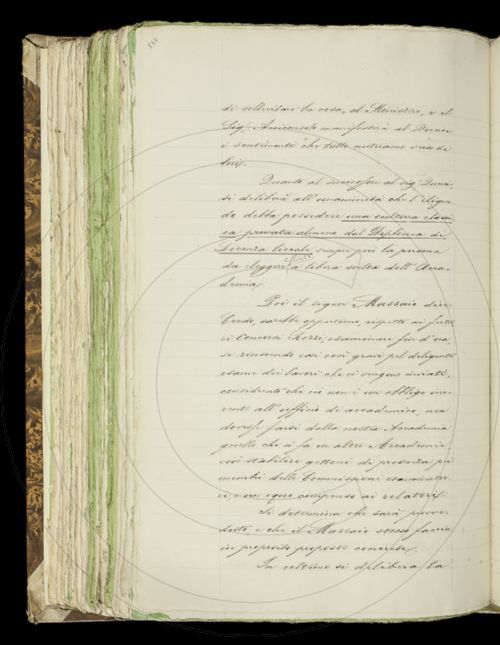 di sollecitar la cosa, al Ministro, e il
Sig. Arciconsolo manifesterà al Donner
i sentimenti che tutti nutriamo
Quanto al successore al sig.
si delibera all'unanimità che l'eligen
do debba possedere una cultura classi
ca provata almeno dal Diploma di
Licenza liceale sempre poi la persona
da eleggersi a libera scelta dell'Acca
demia
Poi il signor Massaio dice
Crede, sarebbe opportuno, rispetto ai futu
ri Concorsi Rezzi, esaminare fin d'ora,
se riuscendo così così gravi pel diligente
esame dei lavori che ci vengono inviati,
considerato che ciò non è un obbligo ine
rente all'ufficio di accademico, non
dovesse farsi dalla nostra Accademia
quello che si fa in altre Accademie
cioè stabilire gettoni di presenza pei
membri delle Commissioni esaminatri
ci, e un equo compenso ai relatori.
Si determina che sarà provve
duto, e che il Massaio stesso faccia
in proposito proposte concrete.
In ultimo si delibera la